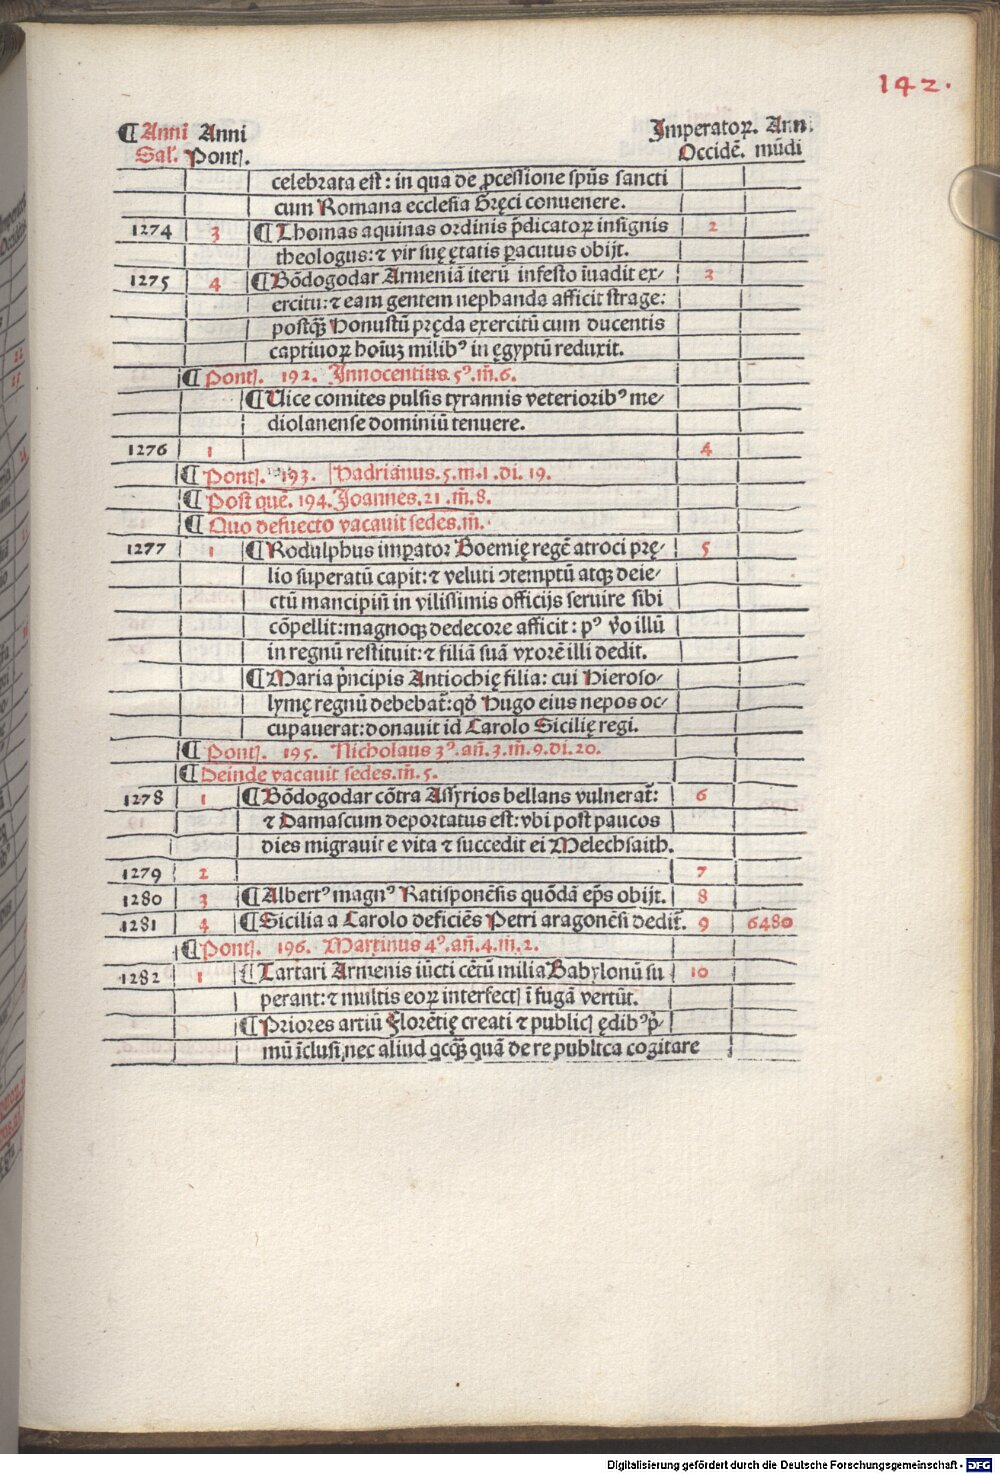 142.
¶ Anni Anni Imperatoꝝ. Ann.
Sal'. Pont̃. Occidẽ. mũdi
celebrata est: in qua de ꝓcessione spũs sancti
cum Romana ecclesia Gręci conuenere.
1274 3 ¶ Thomas aquinas ordinis p̃dicatoꝝ insignis 2
theologus: ⁊ vir suę ętatis ꝑacutus obijt.
1275 4 ¶ Bõdogodar Armeniã iterũ infesto ĩuadit ex- 3
ercitu: ⁊ eam gentem nephanda afficit strage:
postq̃ȝ honustũ pręda exercitũ cum ducentis
captiuoꝝ hoĩuȝ milibꝰ in ęgyptũ reduxit.
¶ Pont̃. 192. Innocentius. 5ꝰ. m̃. 6.
¶ Uice comites pulsis tyrannis veterioribꝰ me-
diolanense dominiũ tenuere.
1276 1 4
¶ Pont̃. 193. Hadrianus. 5. m. 1. di. 19.
¶ Post quẽ. 194. Joannes. 21. m̃. 8.
¶ Quo defuncto vacauit sedes. m̃.
1277 1 ¶ Rodulphus imꝑator Boemię regẽ atroci prę- 5
lio superatũ capit: ⁊ veluti ꝯtemptũ atqȝ deie-
ctũ mancipiũ in vilissimis officijs seruire sibi
cõpellit: magnoqȝ dedecore afficit: pꝰ v̊o illũ
in regnũ restituit: ⁊ filiã suã vxorẽ illi dedit.
¶ Maria p̃ncipis Antiochię filia: cui Hieroso-
lymę regnũ debebat̃: qđ Hugo eius nepos oc-
cupauerat: donauit id Carolo Sicilię regi.
¶ Pont̃. 195. Nicholaus 3ꝰ. añ. 3. m̃. 9. di. 20.
¶ Deinde vacauit sedes. m̃. 5.
1278 1 ¶ Bõdogodar cõtra Assyrios bellans vulnerat̃: 6
⁊ Damascum deportatus est: vbi post paucos
dies migrauit e vita ⁊ succedit ei Melechsaith.
1279 2 7
1280 3 ¶ Albertꝰ magnꝰ Ratisponẽsis quõdã ep̃s obijt. 8
1281 4 ¶ Sicilia a Carolo deficiẽs Petri aragonẽsi dedit̃. 9 6480
¶ Pont̃. 196. Martinus 4ꝰ. añ. 4. m̃. 2.
1282 1 ¶ Tartari Armenis iũcti cẽtũ milia Babylonũ su 10
perant: ⁊ multis eoꝝ interfect̃ ĩ fugã vertũt.
¶ Priores artiũ Florẽtię creati ⁊ public̃ ędibꝰ p̃-
mũ ĩclusi, nec aliud qcq̃ȝ quã de re publica cogitare
Digitalisierung gefördert durch die Deutsche Forschungsgemeinschaft - DFG